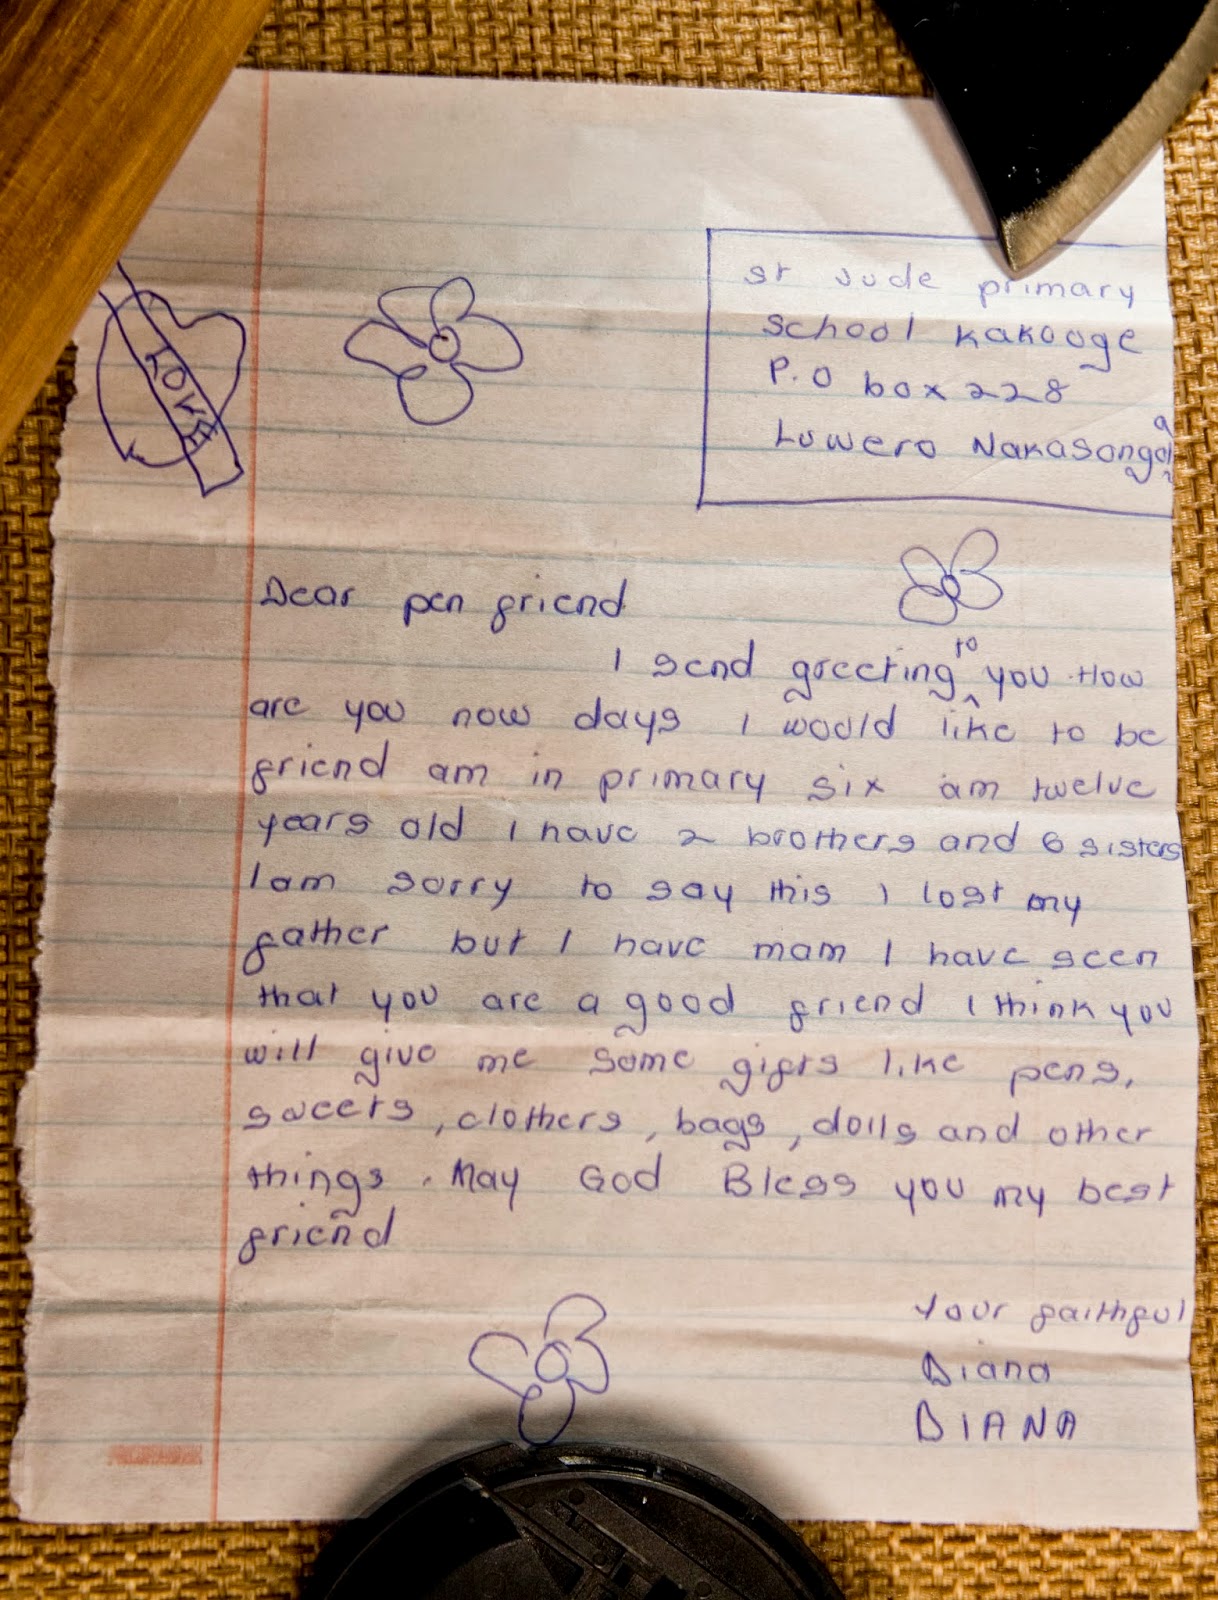 LOVE
st Jude primary
school kakooge
P.O box 228
Luwero Nakasongola
Dear pen friend
I send greeting to you. How
are you now days I would like to be
friend am in primary six am twelve
years old I have 2 brothers and 6 sisters
I am sorry to say this I lost my
father but I have mam I have seen
that you are a good friend I think you
will give me some gifts like pens,
sweets, clothers, bags, dolls and other
things. May God Bless you my best
friend
Your faithful
Diana
DIANA